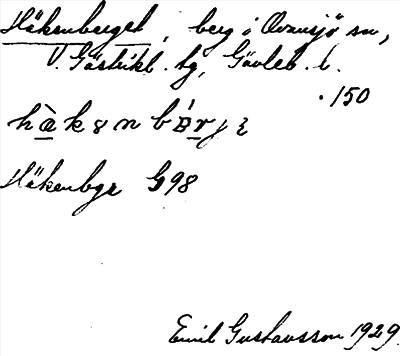 Håkenberget, berg i Ovansjö sn,
V. Gästrikl. tg, Gävleb. l.
·150
Håkenbgr G98
Emil Gustavsson 1929.